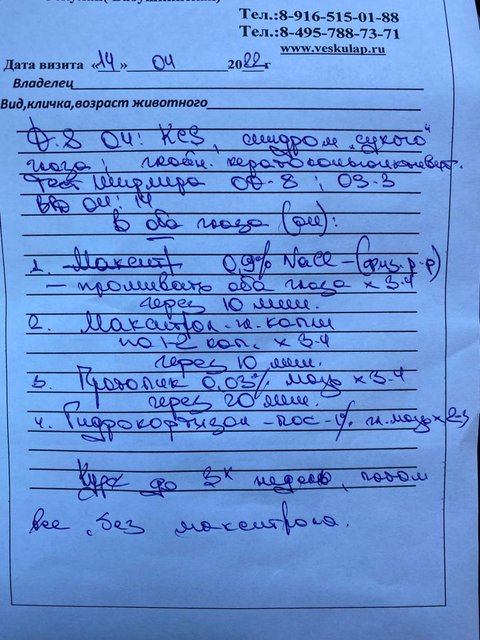 Тел.:8-916-515-01-88
Тел.:8-495-788-73-71
www.veskulap.ru
Дата визита «14» 04 2022г
Владелец
Вид,кличка,возраст животного
D.S ОИ: KCS, синдром „сухого“
глаза; гнойн. кератоконъюнктивит.
Тест Ширмера OD-8; OS-3
ВГД ОИ: 14
В оба глаза (ОИ):
1. Максит 0,9% NaCl – (физ. р-р)
– промывать оба глаза х 3-4
через 10 мин.
2. Макситрол – гл. капли
по 1-2 кап. х 3-4
через 10 мин.
3. Протопик 0,03% мазь х 3-4
через 20 мин.
4. Гидрокортизон – пос – 1% гл. мазь х 2-3
Курс до 3х недель, потом
все, без макситрола.